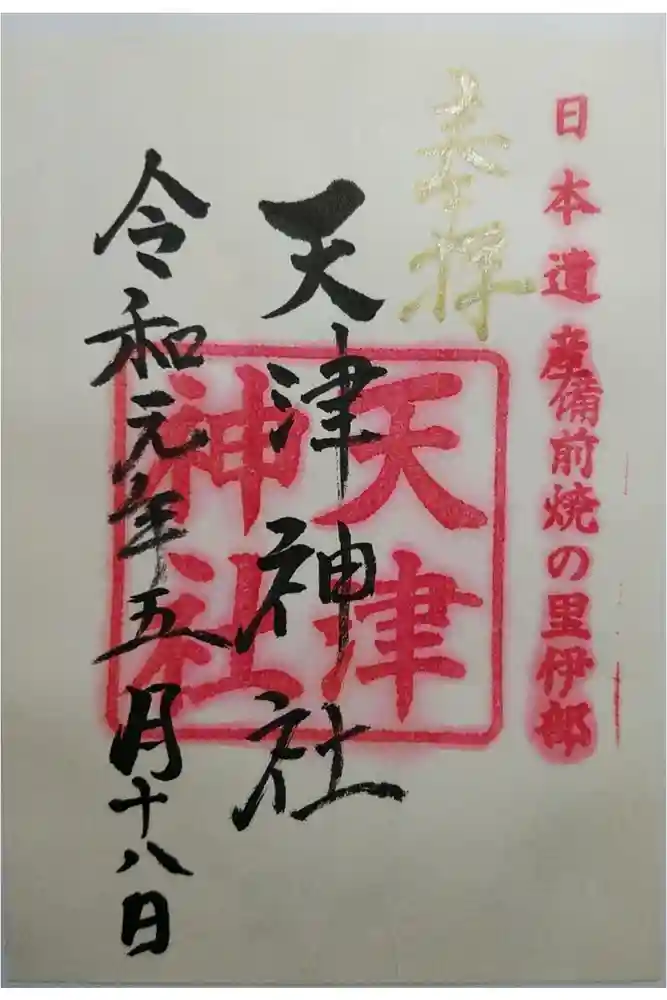 日本遺産備前焼の里伊部
奉拝
天津神社
天津
神社
令和元年五月十八日